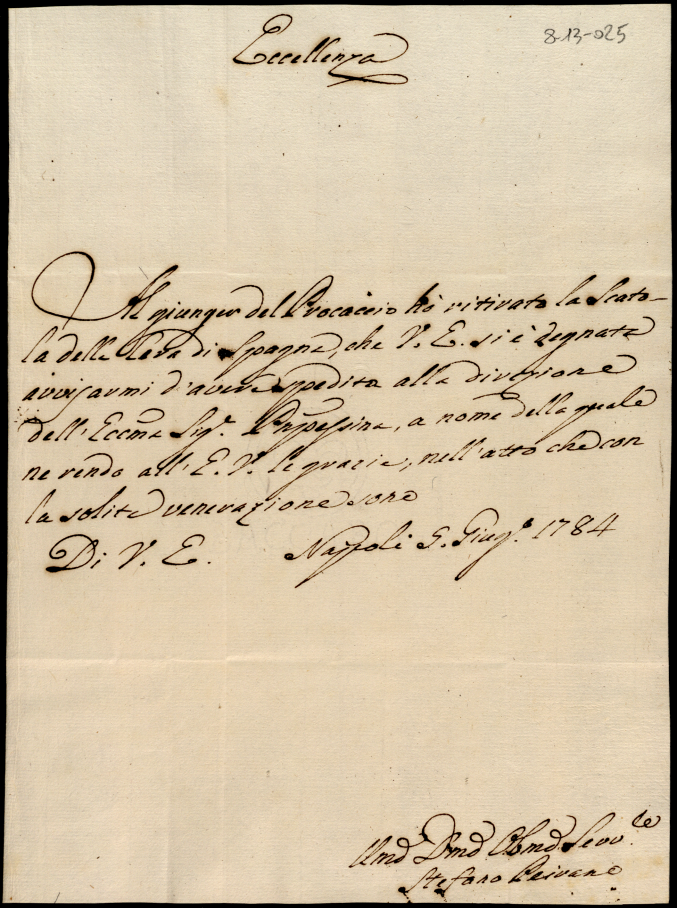 8-13-025
Eccellenza
Al giunger del Procaccio hò ritirato la Scato-
la della Cera di Spagna, che V. E. si è degnata
avvisarmi d'avere spedita alla direzione
dell' Eccma Sigr. Pnpessina, a nome della quale
ne rendo all' E. V. le grazie, nell' atto che con
la solita venerazione sono
Di V. E. Napoli 5. Giugo. 1784
Umo Dmo Obmo Servre
Stefano